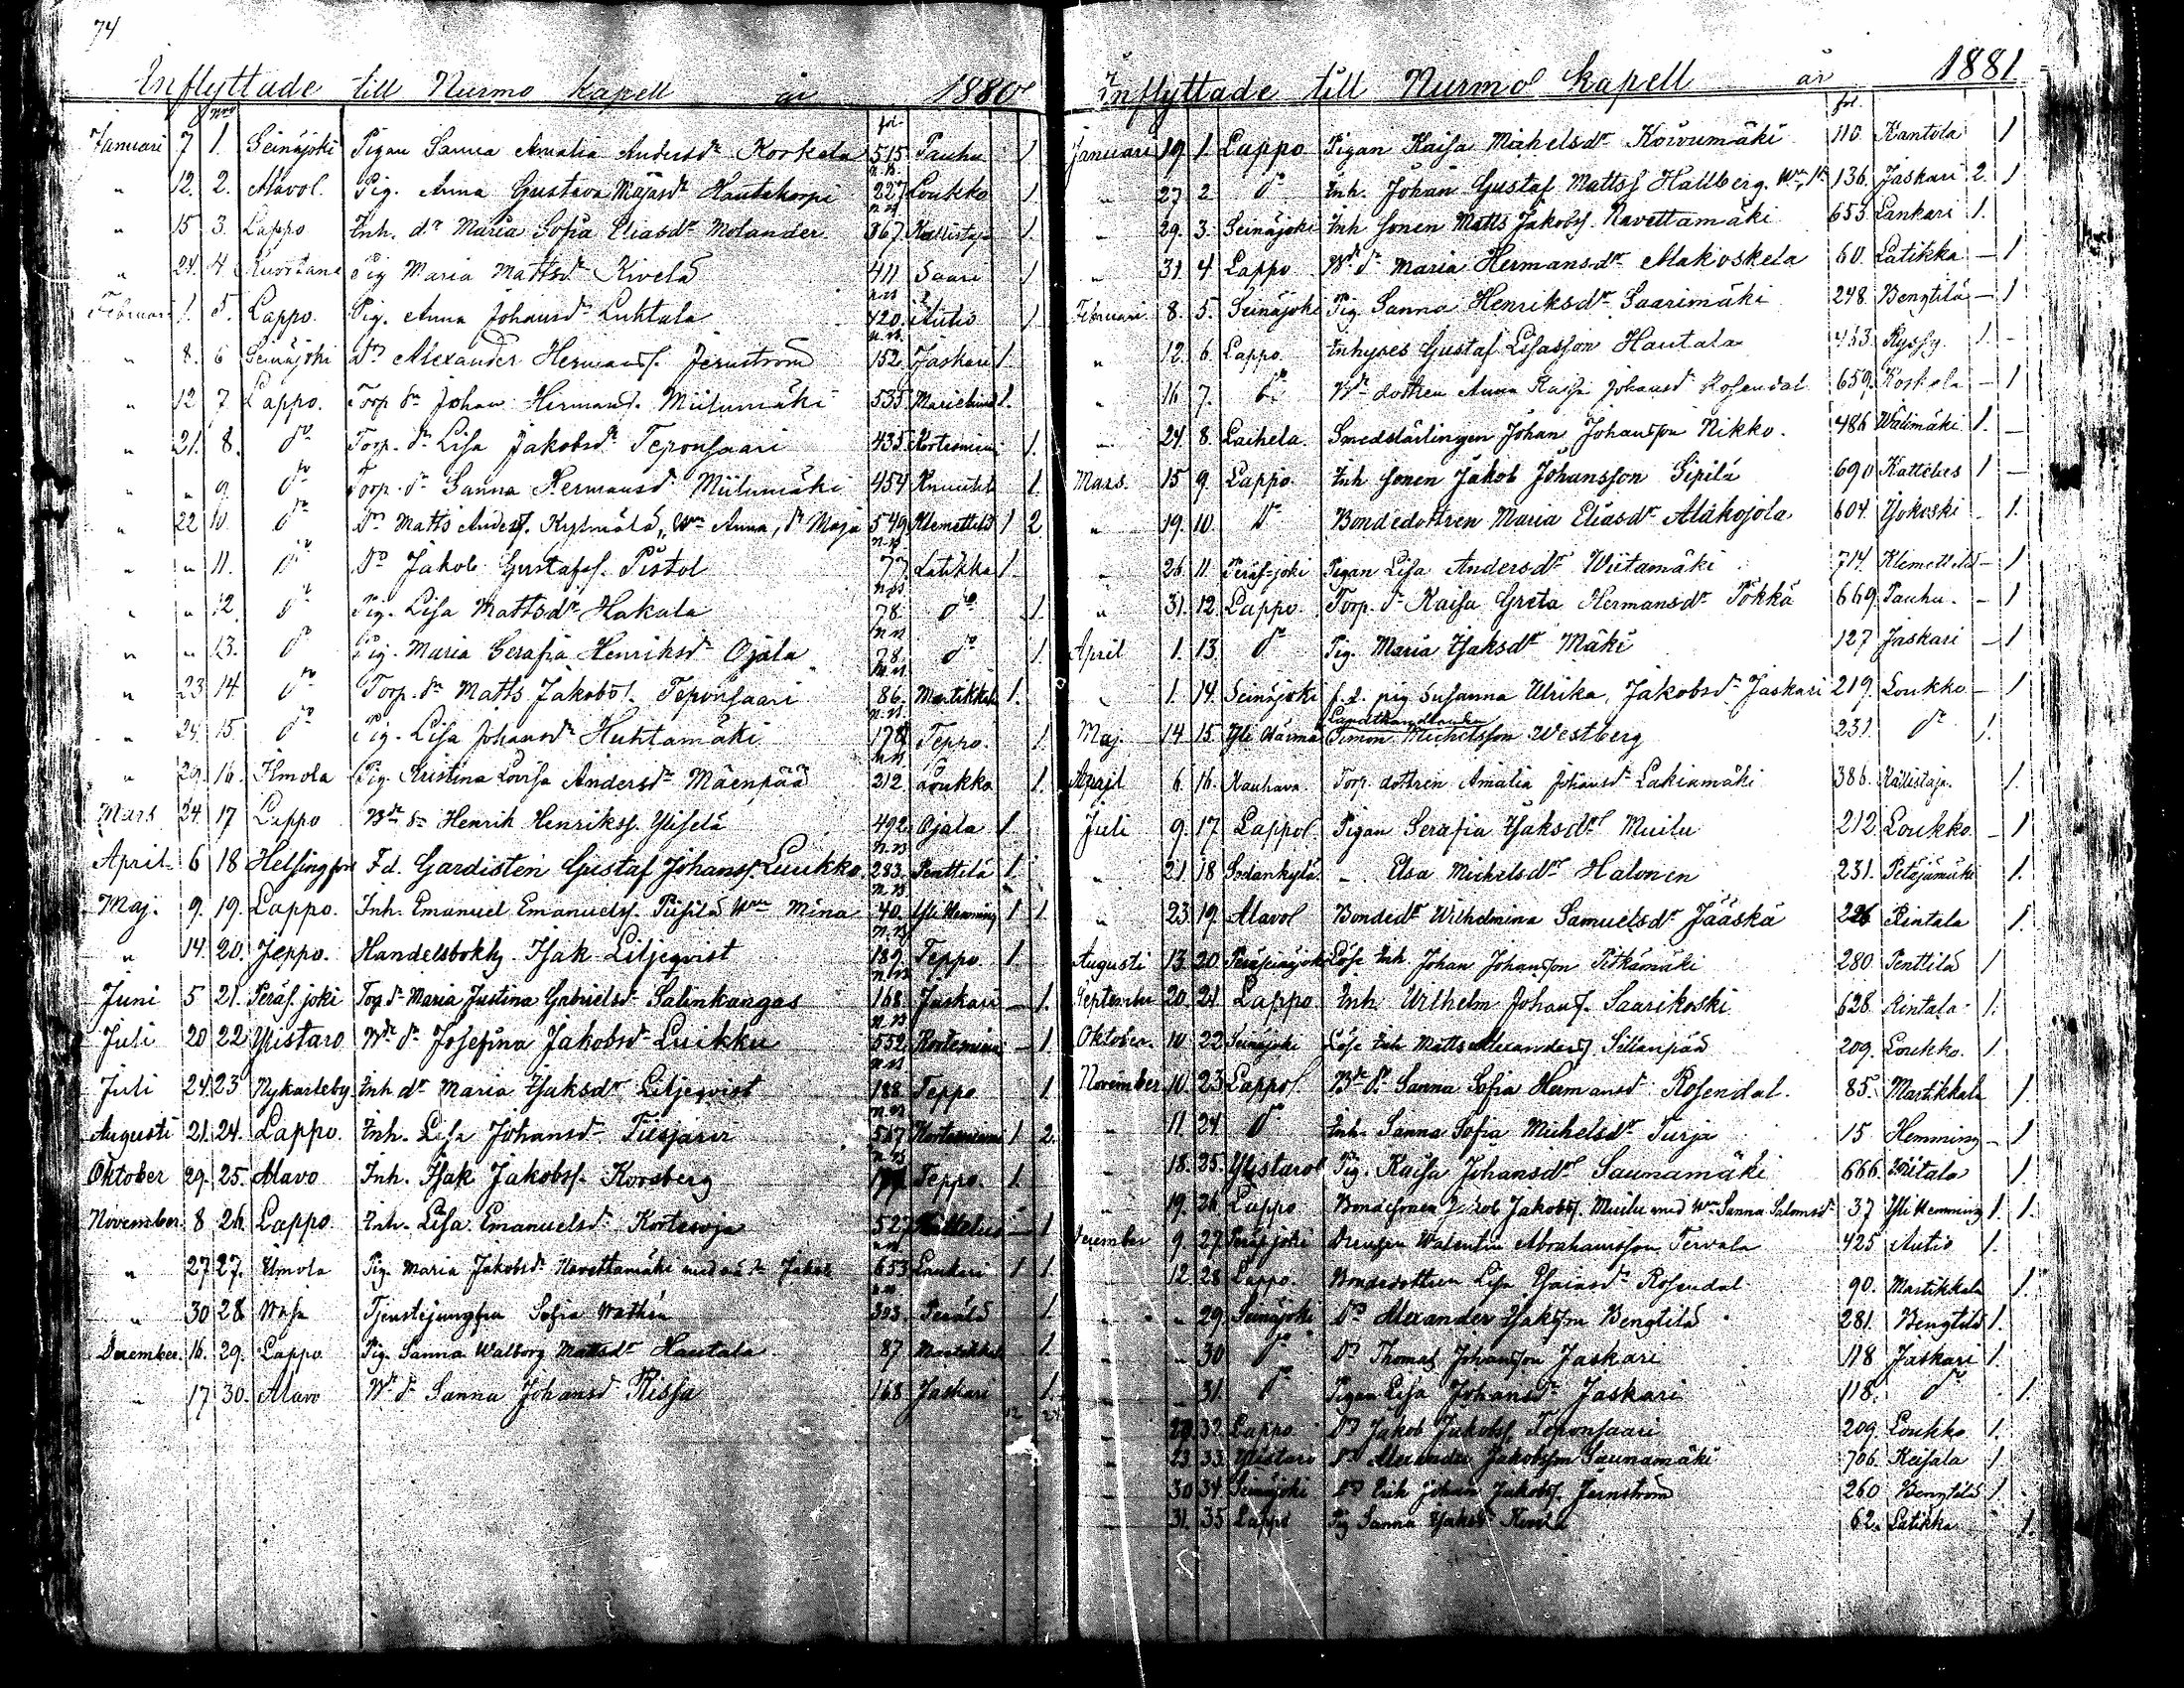 74
Inflyttade till Nurmo kapell år 1880
nro fol.
Januari 7 1. Seinäjoki Pigan Sanna Amalia Andersdr Korkala 515 Pauhu 1
" 12. 2. Alavo Pig. Anna Gustava Majasdr Hautakorpi 227 Loukko 1
" 15 3. Lappo Inh. dr Maria Sofia Eliasdr Molander 367 Kallistaja 1.
" 24. 4 Kuortane Pig Maria Mattsdr Kivelä 411 Saari 1
Februari 1. 5. Lappo. Pig. Anna Johansdr Luhtala 420. Autio 1
" 8. 6 Seinäjoki Dr Alexander Hermanss. Jernström 152. Jaskari 1.
" 12 7 Lappo. Torp. sn Johan Hermanss. Miilumäki 535 1.
" 21. 8. do Torp. dr Lisa Jakobsdr Teponsaari 435 Kortesniemi 1.
" " 9. do Torp. dr Sanna Hermansd. Miilumäki 454 Knuuttila 1.
" 22 10. do Dr Matts Anderss. Kylmälä, Wn Anna, dr Maja 549 Klemettilä 1 2
" " 11. do Dr Jakob Gustafss. Pistol 77 Latikka 1
" " 12. do Pig. Lisa Mattsdr Hakala 78. do 1.
" " 13. do Pig. Maria Serafia Henriksdr Ojala 78. do 1.
" 23 14. do Torp. sn Matts Jakobs. Teponsaari 86. Martikkala 1.
" 24. 15 do Pig. Lisa Johansdr Huhtamäki 178 Teppo. 1
" 29. 16. Ilmola Pig. Kristina Lovisa Andersdr Mäenpää 212. Loukko 1.
Mars 24. 17 Lappo Bde sn Henrik Henrikss. Yliselä 492. Ojala 1
April 6 18 Helsingfors F.d. Gardisten Gustaf Johanss. Luukko 283. Penttilä 1.
Maj. 9. 19. Lappo. Inh. Emanuel Emanuelss. Piisilä Wn Mina 40. Yli Hemming 1 1
" 14. 20. Jeppo. Handelsbokh. Isak Liljeqvist 189. Teppo 1
Juni 5 21. Peräs.joki Torp dr Maria Justina Gabrielsdr Salinkangas 168 Jaskari – 1.
Juli 20 22 Ylistaro Bde dr Josefina Jakobsdr Luikku 552. Kortesniemi – 1.
Juli 24. 23 Nykarleby Inh dr Maria Isaksdr Liljeqvist 188 Teppo 1
Augusti 21. 24. Lappo. Inh. Lisa Johansdr Tiisjärvi 567 Kortesniemi 1 2.
Oktober 29. 25. Alavo Inh. Isak Jakobss. Korsberg Teppo. 1.
November 8 26. Lappo Inh. Lisa Emanuelsdr Kortesoja 527 Kattelus – 1
" 27 27. Ilmola Pig. Maria Jakobsdr Navettamäki med oä sn Jakob 653 Lankari 1 1.
" 30 28. Wasa Tjenstejungfru Sofia Wathén 303. Perälä 1.
December. 16. 29. Lappo Pig. Sanna Walborg Mattsdr Hautala 87 Martikkala 1.
" 17 30. Alavo Bde dr Sanna Johansdr Rissa 168 Jaskari 1.
12 24
Inflyttade till Nurmo kapell år 1881
fol.
Januari 19 1. Lappo Pigan Kaisa Michelsdr Koivumäki 110 Kantola 1
" 27 2 do Inh. Johan Gustaf Mattss Hallberg. Wn, 1 s. 136. Jaskari 2. 1
" 29. 3. Seinäjoki Inh sonen Matts Jakobss. Navettamäki 653 Lankari 1.
" 31. 4 Lappo Bde dr Maria Hermansdr Alakoskela 60. Latikka – 1
Februari. 8. 5. Seinäjoki Pig. Sanna Henriksdr Saarimäki 248. Bengtilä – 1
" 12. 6. Lappo. Inhyses Gustaf Lisasson Hautala 453. Ryssy. 1. -
" 16 7. do Bde dottren Anna Kaisa Johansdr Rosendal 659. Koskela – 1
" 24. 8. Laihela. Smedslärlingen Johan Johansson Nikko. 486. Wälimäki 1. –
Mars. 15 9. Lappo. Inh sonen Jakob Johansson Sipilä 690 Kattelus 1 –
" 19. 10. do Bondedottren Maria Eliasdr Alakojola 604. Ylikoski – 1.
" 26. 11. Peräs-joki Pigan Lisa Andersdr Wiitamäki 714. Klemettilä – 1
" 31. 12. Lappo. Torp. dr Kaisa Greta Hermansdr Pökkä 669. Pauhu. – 1
April 1. 13. do Pig. Maria Isaksdr Mäki 127 Jaskari – 1
" 1. 14. Seinäjoki f.d. pig Susanna Ulrika, Jakobsdr Jaskari 219. Loukko – 1
Maj. 14 15. Yli Härmä Landthandlanden Simon Michelsson Westberg 231. do 1.
April 6. 16. Kauhava. Torp. dottren Amalia Johansdr Lakiamäki 386. Kallistaja. 1.
Juli 9. 17 Lappo Pigan Serafia Isaksdr Muilu 212. Loukko. – 1
" 21. 18 Sodankylä. – Elsa Michelsdr Halonen 231. Petäjämäki 1.
" 23. 19. Alavo Bondedr Wilhelmina Samuelsdr Jääskä 226 Rintala 1.
Augusti 13. 20. Peräseinäjoki Löse Inh. Johan Johansson Pitkämäki 280 Penttilä 1
September 20. 21. Lappo Inh Wilhelm Johanss. Saarikoski 628 Rintala 1.
Oktober. 10. 22 Seinäjoki Löse Inh. Matts Alexanderss Sillanpää 209. Loukko. 1.
November 10. 23 Lappo Bde dr Sanna Sofia Hermansdr Rosendal. 85. Martikkala 1.
" 11. 24. do Inh. Sanna Sofia Michelsdr Turja 15 Hemming – 1
" 18. 25. Ylistaro Pig. Kaisa Johansdr Saunamäki 666. 1.
" 19. 26 Lappo Bondesonen Jakob Jakobss. Muilu med Wn Sanna Salomsdr 37 Yli Hemming 1. 1.
December 9. 27 Peräs joki Drengen Walentin Abrahamsson Tervala 425 Autio 1.
" 12. 28 Lappo. Bondedottren Lisa Esaiasdr Rosendal 90. Martikkala 1.
" " 29. Seinäjoki Dr Alexander Isaksson Bengtilä 281. Bengtilä 1.
" " 30 do Dr Thomas Johansson Jaskari 118 Jaskari 1.
" " 31. do Pigan Lisa Johansdr Jaskari 118. do 1.
" 20. 32 Lappo Dr Jakob Jakobss. Teponsaari 209. Loukko 1.
" 23 33 Ylistaro Dr Alexander Jakobsson Saunamäki 706. Keisala 1
" 30 34 Seinäjoki Dr Erik Johan Jakobss. Jernström 260 Bengtilä 1.
" 31. 35 Lappo Pig Sanna Isaksdr 62. Latikka 1.